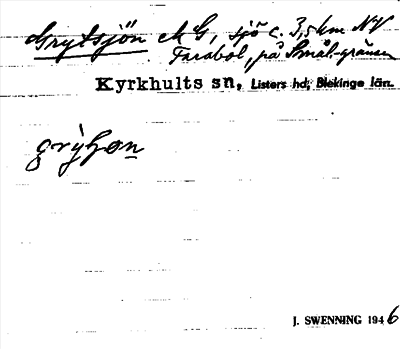 Grytsjön MG, sjö c. 3,5 km NV
Farabol, på Smål.-gränsen
Kyrkhults sn, Listers hd, Blekinge län.
J. SWENNING 1946